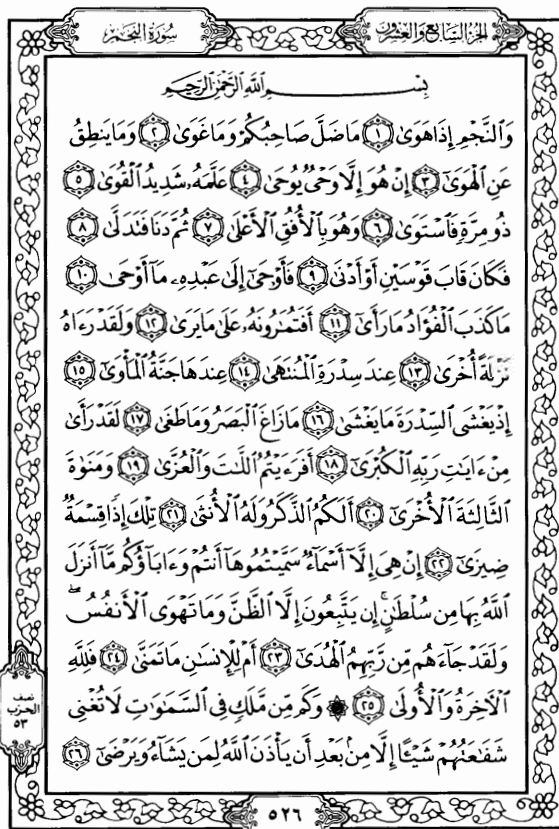 سُورَةُ النَّجْمِ
الجُزءُ السَّابِعُ وَالعِشْرُونَ
بِسْمِ اللَّهِ الرَّحْمَٰنِ الرَّحِيمِ
وَالنَّجْمِ إِذَا هَوَىٰ ١ مَا ضَلَّ صَاحِبُكُمْ وَمَا غَوَىٰ ٢ وَمَا يَنطِقُ
عَنِ الْهَوَىٰ ٣ إِنْ هُوَ إِلَّا وَحْيٌ يُوحَىٰ ٤ عَلَّمَهُۥ شَدِيدُ الْقُوَىٰ ٥
ذُو مِرَّةٍ فَاسْتَوَىٰ ٦ وَهُوَ بِالْأُفُقِ الْأَعْلَىٰ ٧ ثُمَّ دَنَا فَتَدَلَّىٰ ٨
فَكَانَ قَابَ قَوْسَيْنِ أَوْ أَدْنَىٰ ٩ فَأَوْحَىٰ إِلَىٰ عَبْدِهِۦ مَا أَوْحَىٰ ١٠
مَا كَذَبَ الْفُؤَادُ مَا رَأَىٰ ١١ أَفَتُمَٰرُونَهُۥ عَلَىٰ مَا يَرَىٰ ١٢ وَلَقَدْ رَءَاهُ
نَزْلَةً أُخْرَىٰ ١٣ عِندَ سِدْرَةِ الْمُنتَهَىٰ ١٤ عِندَهَا جَنَّةُ الْمَأْوَىٰ ١٥
إِذْ يَغْشَى السِّدْرَةَ مَا يَغْشَىٰ ١٦ مَا زَاغَ الْبَصَرُ وَمَا طَغَىٰ ١٧ لَقَدْ رَأَىٰ
مِنْ ءَايَٰتِ رَبِّهِ الْكُبْرَىٰ ١٨ أَفَرَءَيْتُمُ اللَّٰتَ وَالْعُزَّىٰ ١٩ وَمَنَوٰةَ
الثَّالِثَةَ الْأُخْرَىٰ ٢٠ أَلَكُمُ الذَّكَرُ وَلَهُ الْأُنثَىٰ ٢١ تِلْكَ إِذًا قِسْمَةٌ
ضِيزَىٰ ٢٢ إِنْ هِيَ إِلَّا أَسْمَاءٌ سَمَّيْتُمُوهَا أَنتُمْ وَءَابَاؤُكُم مَّا أَنزَلَ
اللَّهُ بِهَا مِن سُلْطَٰنٍ ۚ إِن يَتَّبِعُونَ إِلَّا الظَّنَّ وَمَا تَهْوَى الْأَنفُسُ ۖ
وَلَقَدْ جَاءَهُم مِّن رَّبِّهِمُ الْهُدَىٰ ٢٣ أَمْ لِلْإِنسَٰنِ مَا تَمَنَّىٰ ٢٤ فَلِلَّهِ
الْآخِرَةُ وَالْأُولَىٰ ٢٥ ۞ وَكَم مِّن مَّلَكٍ فِي السَّمَٰوَٰتِ لَا تُغْنِي
شَفَٰعَتُهُمْ شَيْئًا إِلَّا مِنۢ بَعْدِ أَن يَأْذَنَ اللَّهُ لِمَن يَشَاءُ وَيَرْضَىٰ ٢٦
نصف
الحزب
٥٣
٥٢٦